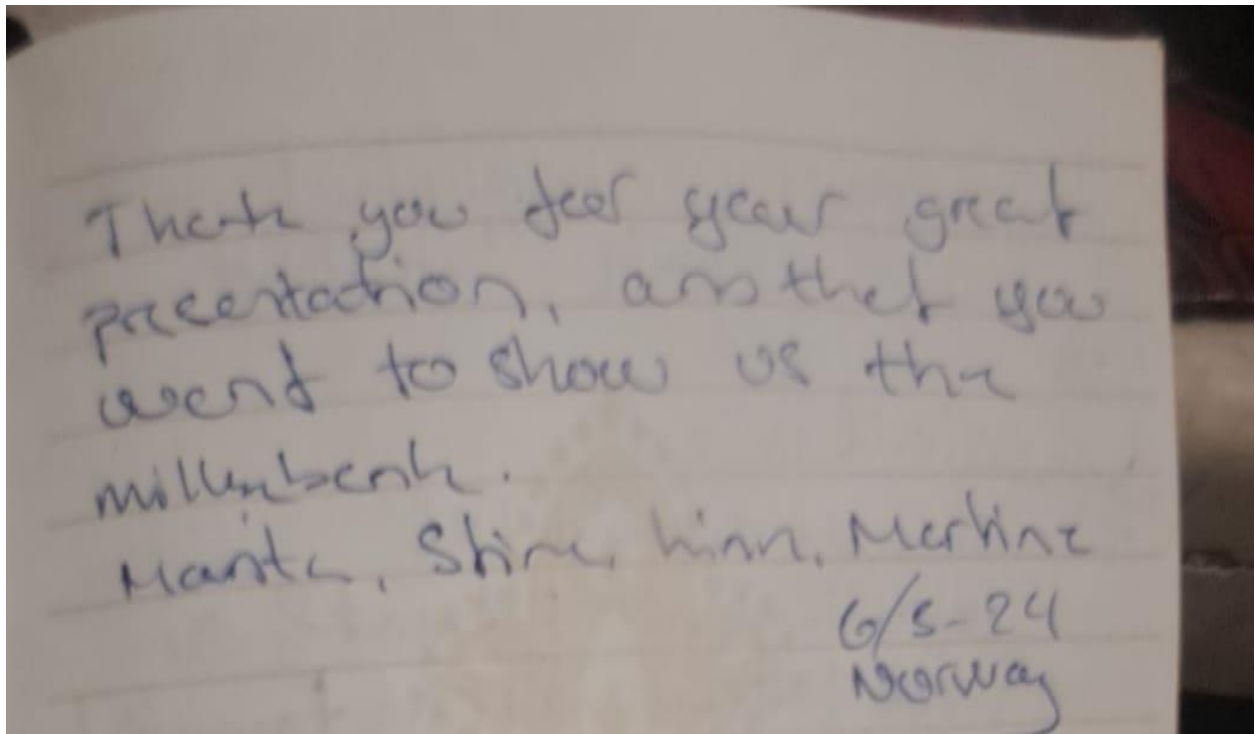 Thank you for your great
presentation, and that you
want to show us the
milkbank.
Marita, Stine, Linn, Martine
6/5-24
Norway